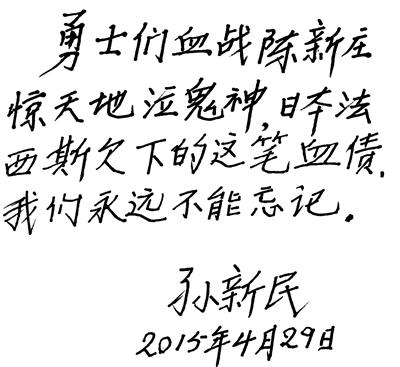 勇士们血战陈新庄
惊天地泣鬼神,日本法
西斯欠下的这笔血债,
我们永远不能忘记。
孙新民
2015年4月29日